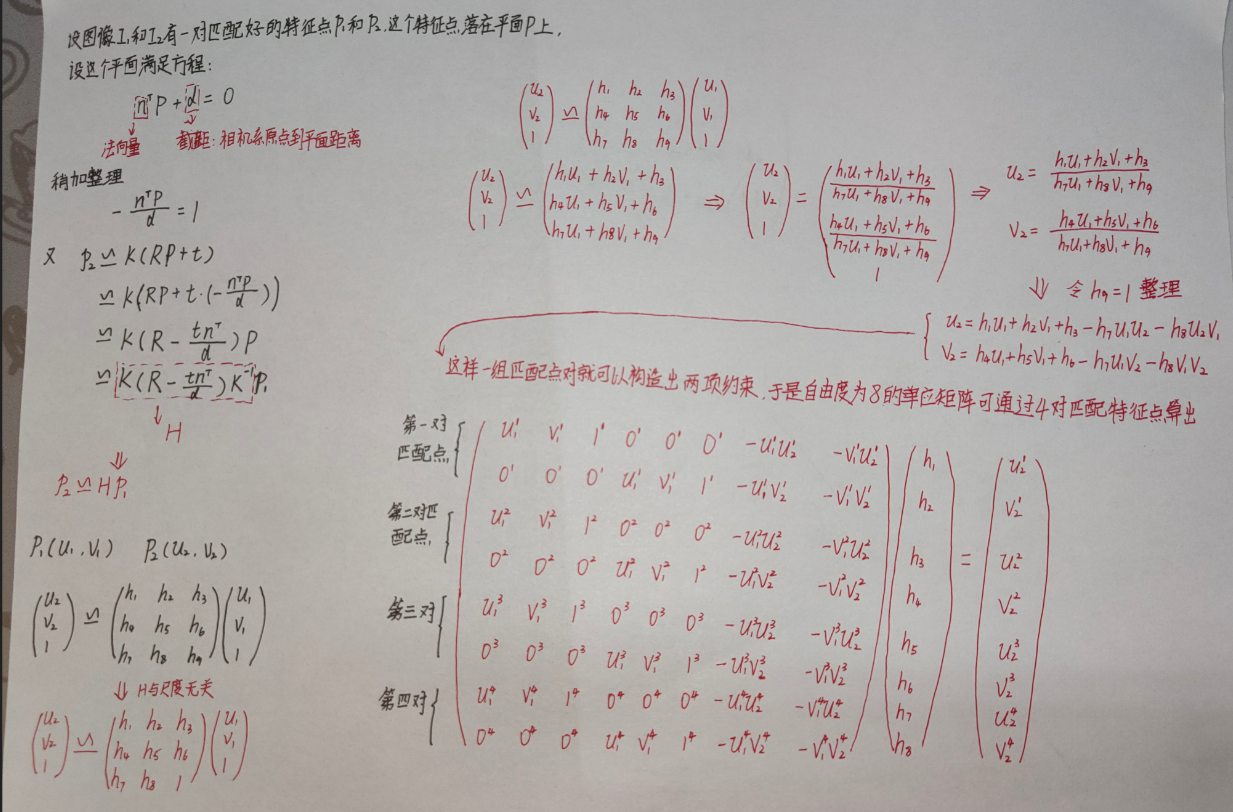 设图像I₁和I₂有一对匹配好的特征点P₁和P₂,这个特征点落在平面P上,
设这个平面满足方程:
nᵀP + d = 0
法向量 截距:相机系原点到平面距离
稍加整理
- nᵀP/d = 1
又 P₂ ≃ K(RP+t)
≃ K(RP+t·(-nᵀP/d))
≃ K(R - tnᵀ/d)P
≃ K(R - tnᵀ/d)K⁻¹P₁
↓
H
⇓
P₂ ≃ HP₁
P₁(u₁,v₁) P₂(u₂,v₂)
(u₂ v₂ 1) ≃ (h₁ h₂ h₃ h₄ h₅ h₆ h₇ h₈ h₉)(u₁ v₁ 1)
⇓ H与尺度无关
(u₂ v₂ 1) ≃ (h₁ h₂ h₃ h₄ h₅ h₆ h₇ h₈ 1)(u₁ v₁ 1)
(u₂ v₂ 1) ≃ (h₁ h₂ h₃ h₄ h₅ h₆ h₇ h₈ h₉)(u₁ v₁ 1)
(u₂ v₂ 1) ≃ (h₁u₁+h₂v₁+h₃ h₄u₁+h₅v₁+h₆ h₇u₁+h₈v₁+h₉) ⇒ (u₂ v₂ 1) = ((h₁u₁+h₂v₁+h₃)/(h₇u₁+h₈v₁+h₉) (h₄u₁+h₅v₁+h₆)/(h₇u₁+h₈v₁+h₉) 1) ⇒ u₂ = (h₁u₁+h₂v₁+h₃)/(h₇u₁+h₈v₁+h₉)
v₂ = (h₄u₁+h₅v₁+h₆)/(h₇u₁+h₈v₁+h₉)
⇓ 令h₉=1 整理
u₂=h₁u₁+h₂v₁+h₃-h₇u₁u₂-h₈u₂v₁
v₂=h₄u₁+h₅v₁+h₆-h₇u₁v₂-h₈v₁v₂
这样一组匹配点对就可以构造出两项约束,于是自由度为8的单位矩阵可通过4对匹配特征点算出
第一对 u₁¹ v₁¹ 1¹ 0¹ 0¹ 0¹ -u₁¹u₂¹ -v₁¹u₂¹ h₁ u₂¹
匹配点 0¹ 0¹ 0¹ u₁¹ v₁¹ 1¹ -u₁¹v₂¹ -v₁¹v₂¹ h₂ v₂¹
第二对匹 u₁² v₁² 1² 0² 0² 0² -u₁²u₂² -v₁²u₂² h₃ = u₂²
配点 0² 0² 0² u₁² v₁² 1² -u₁²v₂² -v₁²v₂² h₄ v₂²
第三对 u₁³ v₁³ 1³ 0³ 0³ 0³ -u₁³u₂³ -v₁³u₂³ h₅ u₂³
0³ 0³ 0³ u₁³ v₁³ 1³ -u₁³v₂³ -v₁³v₂³ h₆ v₂³
第四对 u₁⁴ v₁⁴ 1⁴ 0⁴ 0⁴ 0⁴ -u₁⁴u₂⁴ -v₁⁴u₂⁴ h₇ u₂⁴
0⁴ 0⁴ 0⁴ u₁⁴ v₁⁴ 1⁴ -u₁⁴v₂⁴ -v₁⁴v₂⁴ h₈ v₂⁴